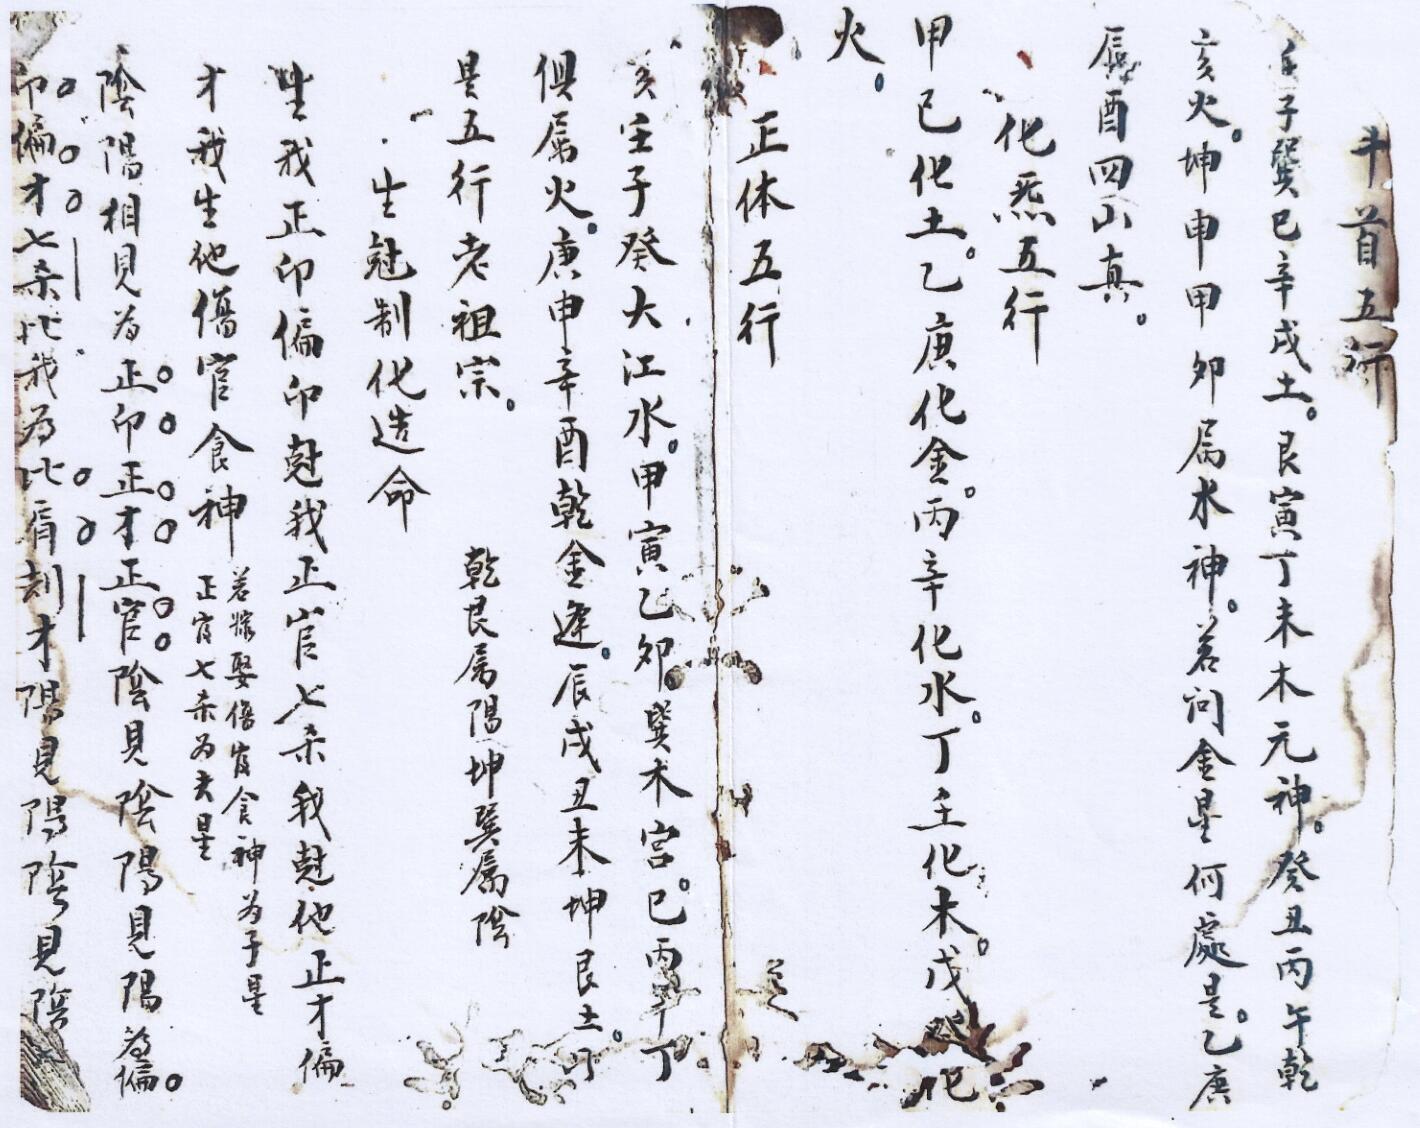 斗首五行
壬子巽巳辛戌土。艮寅丁未木元神。癸丑丙午乾
亥火。坤申甲卯属水神。若问金星何處是。乙庚
辰酉四山真。
化炁五行
甲己化土。乙庚化金。丙辛化水。丁壬化木。戊癸化
火。
正体五行
亥壬子癸大江水。甲寅乙卯巽木宫。巳丙午丁
俱属火。庚申辛酉乾金逢。辰戌丑未坤艮土。
是五行老祖宗。 乾艮属陽坤巽属陰
生尅制化造命
生我正印偏印尅我正官七杀我尅他正才偏
才我生他傷官食神 若嫁娶傷官食神为子星
正官七杀为夫星
陰陽相見为正印正才正官陰見陰陽見陽為偏。
印偏才七杀比我为比肩刦才陽見陽陰見陰